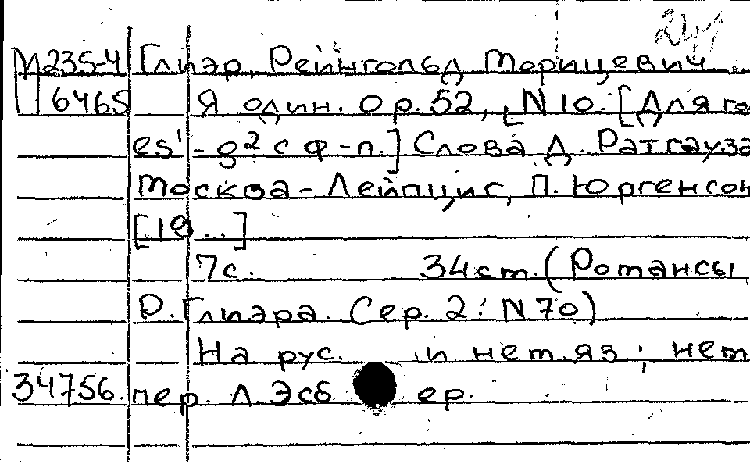 М235-4 Глиэр, Рейнгольд Морицевич
6465 Я один. Op. 52, N 10. [Для го
es¹ - g² с ф-п.] Слова Д. Ратгауза
Москва - Лейпциг, П. Юргенсон
[19..]
7с. 34 см. (Романсы
Р. Глиэра. Сер. 2: N 70)
На рус. и нем. яз; нем
34756. пер. Л. Эсб ер.